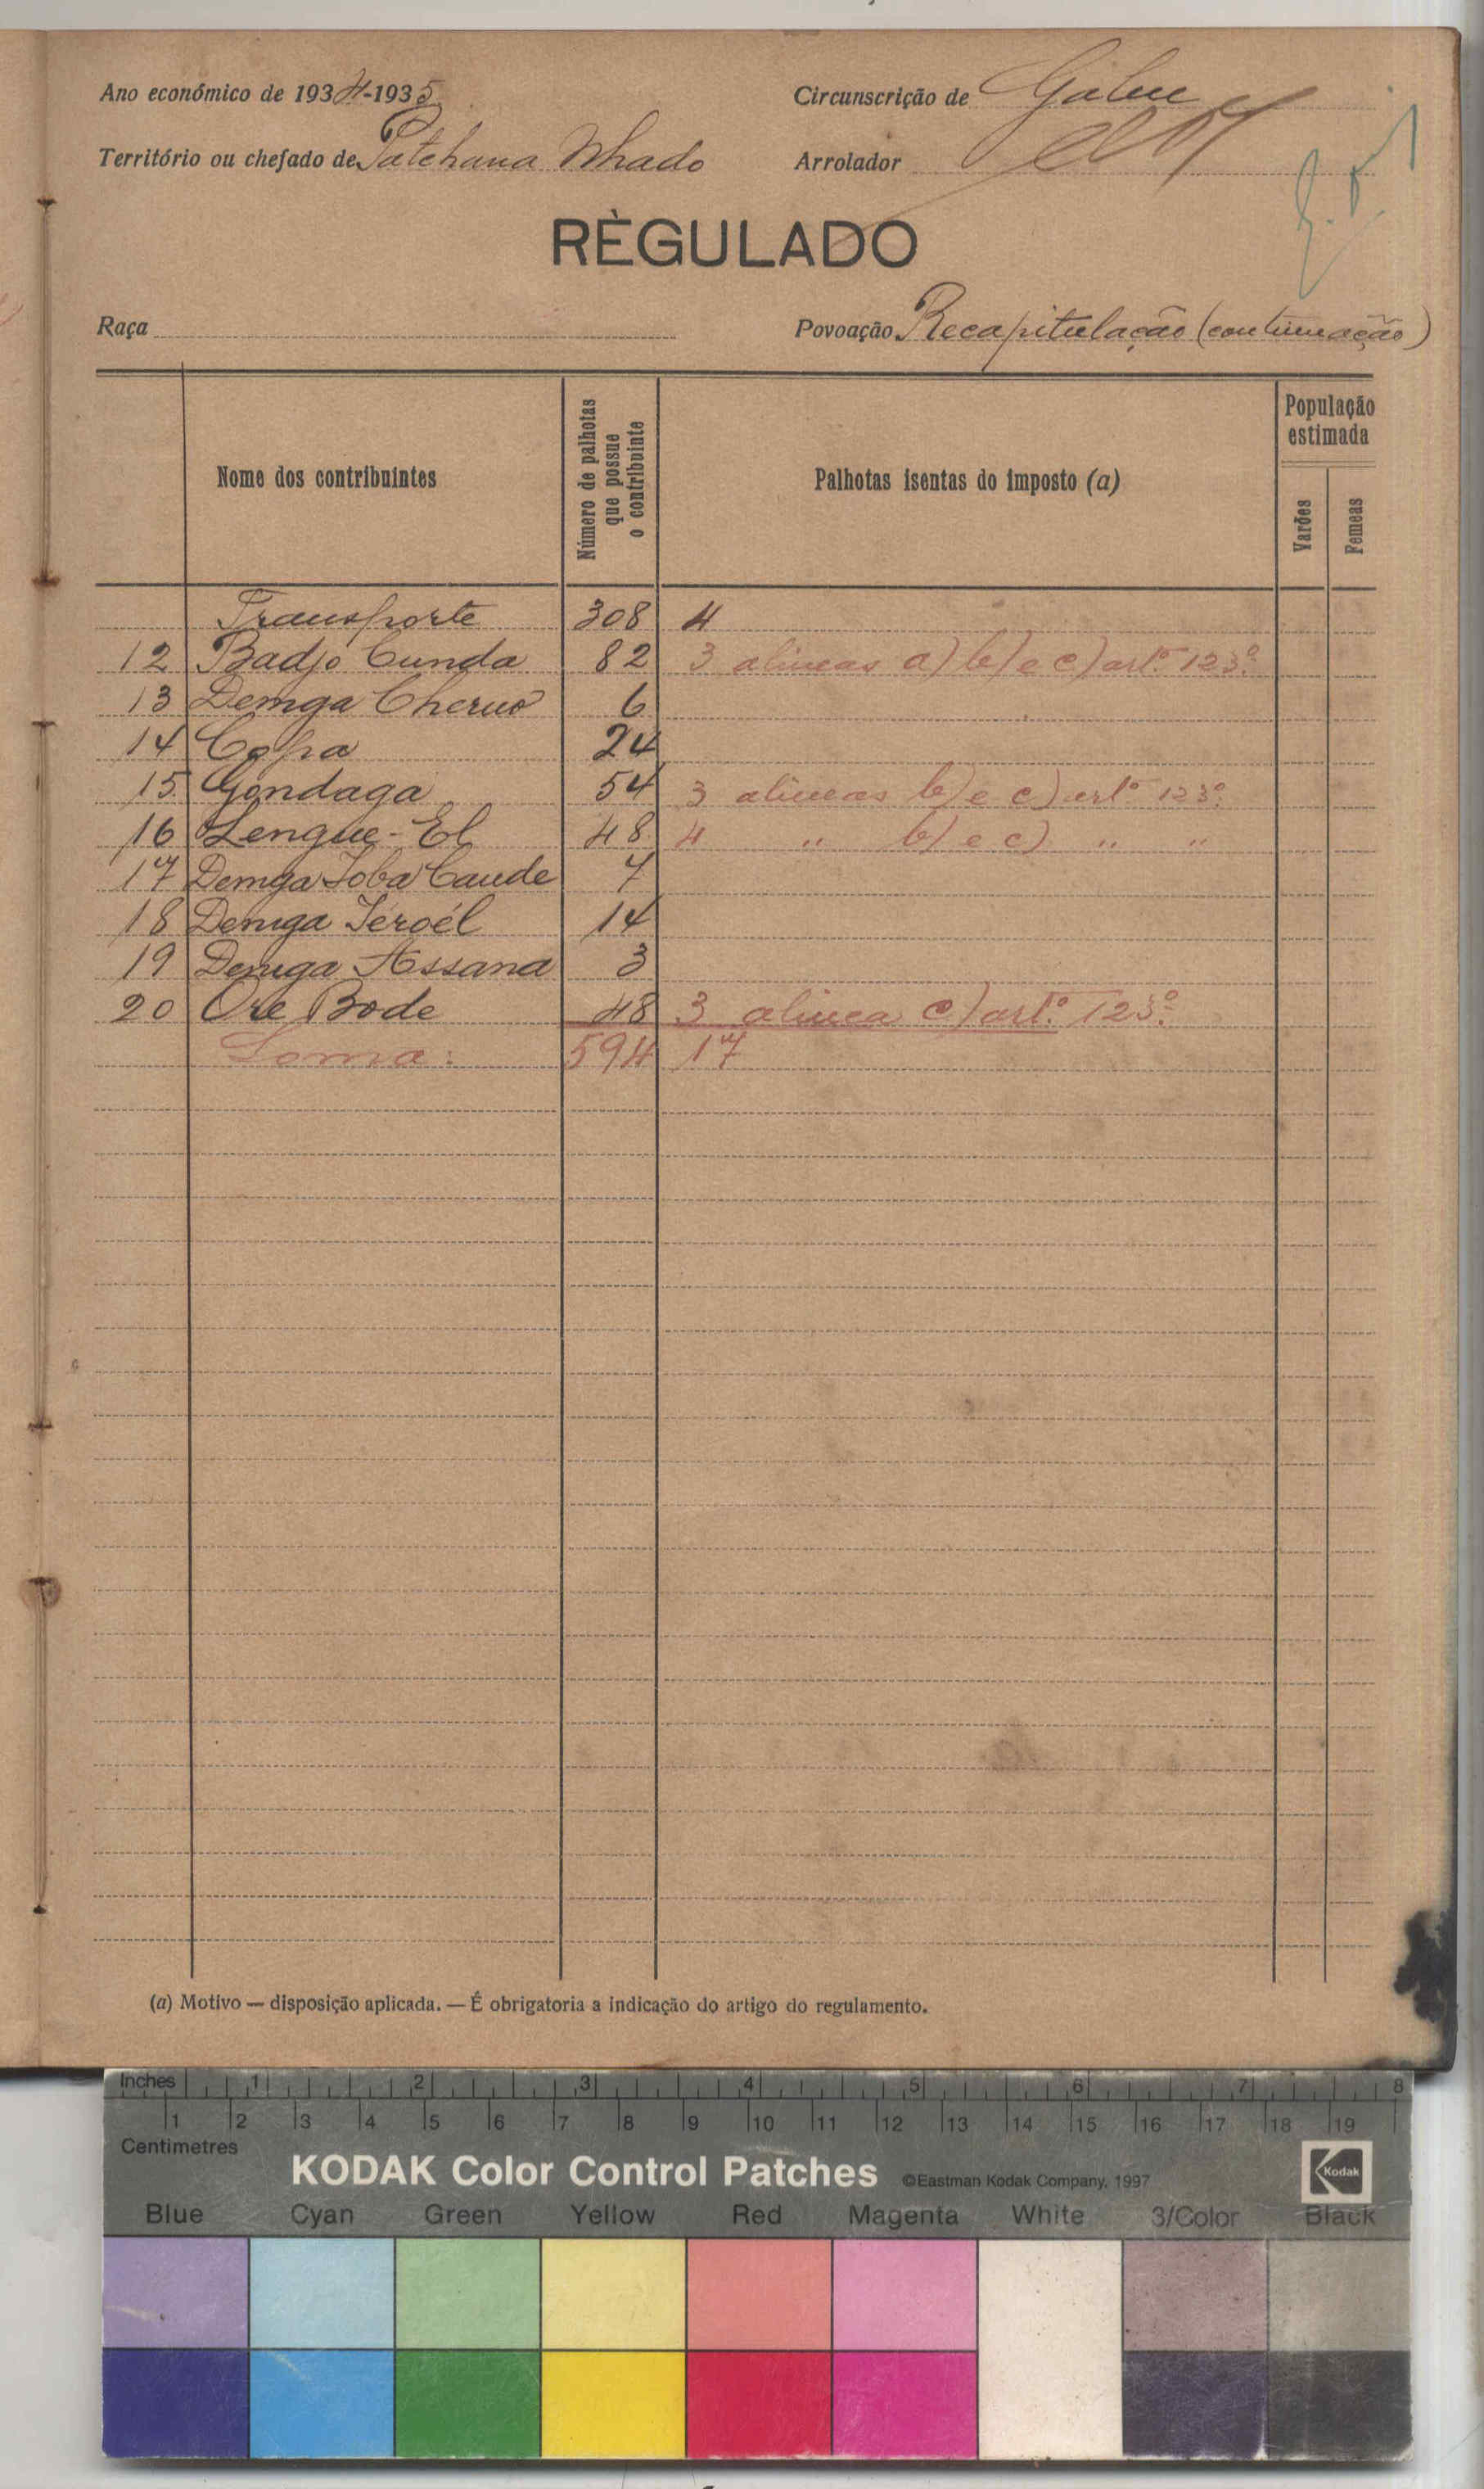 Ano económico de 1934-1935 Circunscrição de Gabu
Território ou chefado de Patchana Nhado Arrolador
RÈGULADO
Raça Povoação Recapitulação (continuação)
Nome dos contribuintes
Número de palhotas que possue o contribuinte
Palhotas isentas do imposto (a)
População estimada
Varões
Femeas
Transporte 308 4
12 Badjo Cunda 82 3 alineas a) b) e c) artº 123º
13 Demga Cherno 6
14 Copa 24
15 Gondaga 54 3 alineas b) e c) artº 123º
16 Lengue-El 48 4 " b) e c) " "
17 Demga Joba Caude 7
18 Demga Teroél 14
19 Demga Assana 3
20 Ore Bode 48 3 alinea c) artº 123º
Soma: 594 17
(a) Motivo — disposição aplicada. — É obrigatoria a indicação do artigo do regulamento.
Inches 1 2 3 4 5 6 7 8
1 2 3 4 5 6 7 8 9 10 11 12 13 14 15 16 17 18 19
Centimetres
KODAK Color Control Patches ©Eastman Kodak Company, 1997 Kodak
Blue Cyan Green Yellow Red Magenta White 3/Color Black